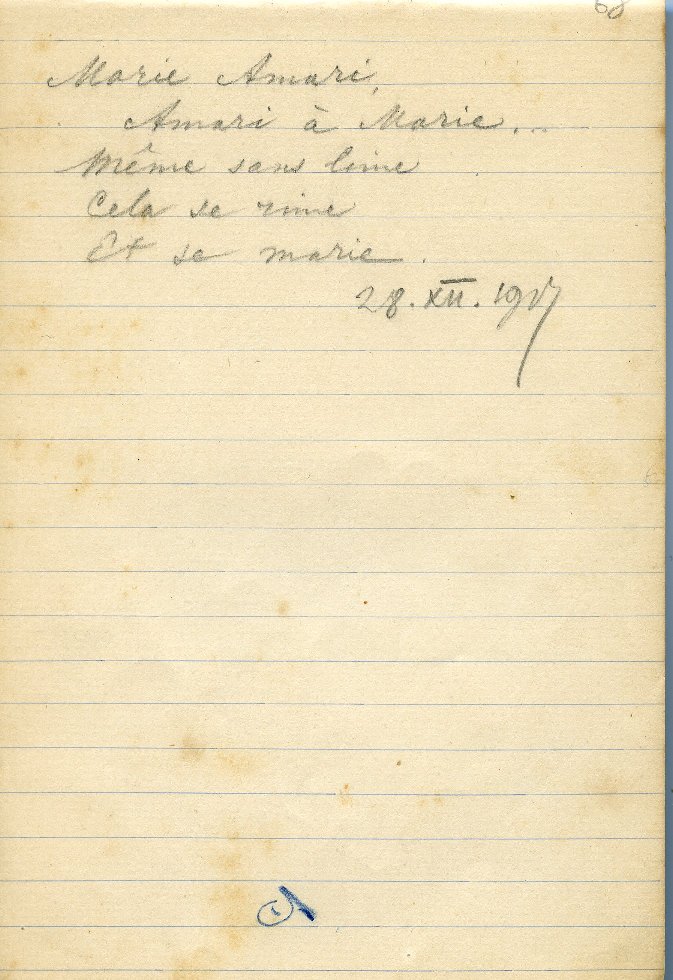 68
Marie Amari,
Amari à Marie...
Même sans lime
Cela se rime
Et se marie.
28. XII. 1917